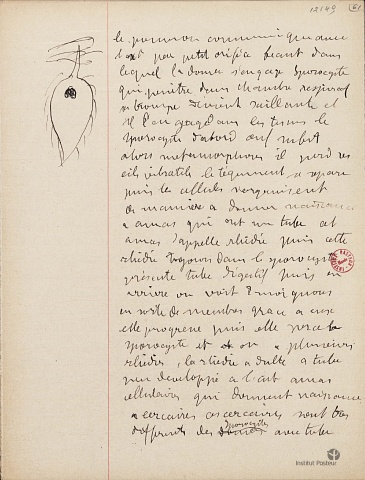 12149
61
le poumon communiquance
tout par petit orifice béant dans
lequel la donner s'engage sporocyste
qui pénètre dans chambre respirat
sa trompe devient saillante et
il l'engage dans les tissus le
sporocyste d'abord oeuf
alors metamorphoses il perd ses
cils vibratils le tegument se separe
puis les cellules s'organisent
de manière a donner naissance
a amas qui ont un tube cet
amas s'appelle rhédie puis cette
rhédie toujours dans le sporocyste
présente tube digestif puis en
arrière on voit 2 moignons
en sorte de membres grace a ceux
elle progresse puis elle perce le
sporocyste et on a plusieurs
rhédies, la rhédie adulte a tube
peu developpé a l'etat amas
cellulaires qui donnent naissance
a cercaires ces cercaires sont tres
sporocystes
differents des avec tube
Institut Pasteur